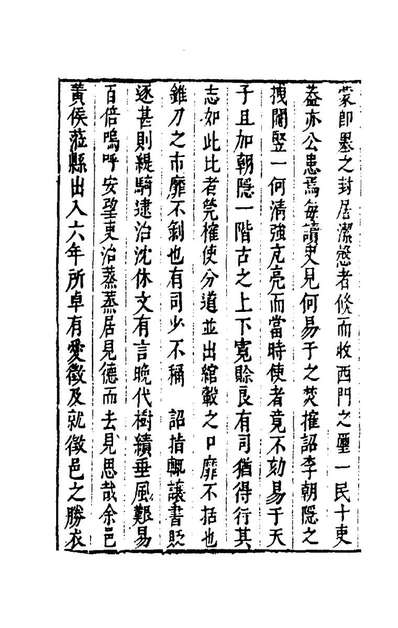 蒙即墨之封居潔慤者倏而收西門之璽一民十吏
蓋亦公患焉每讀史見何易于之焚搉詔李朝隱之
拽閹竪一何清強克亮而當時使者竟不劾易于天
子且加朝隱一階古之上下寬賒良有司猶得行其
志如此比者筦榷使分道並出綰轂之口靡不括也
錐刀之市靡不剝也有司少不稱　詔指輒讓書貶
逐甚則緹騎逮治沈休文有言晚代樹績垂風艱易
百倍嗚呼安望吏治蒸蒸居見德而去見思哉余邑
黃侯蒞縣出入六年所卓有愛徵及就徵邑之勝衣